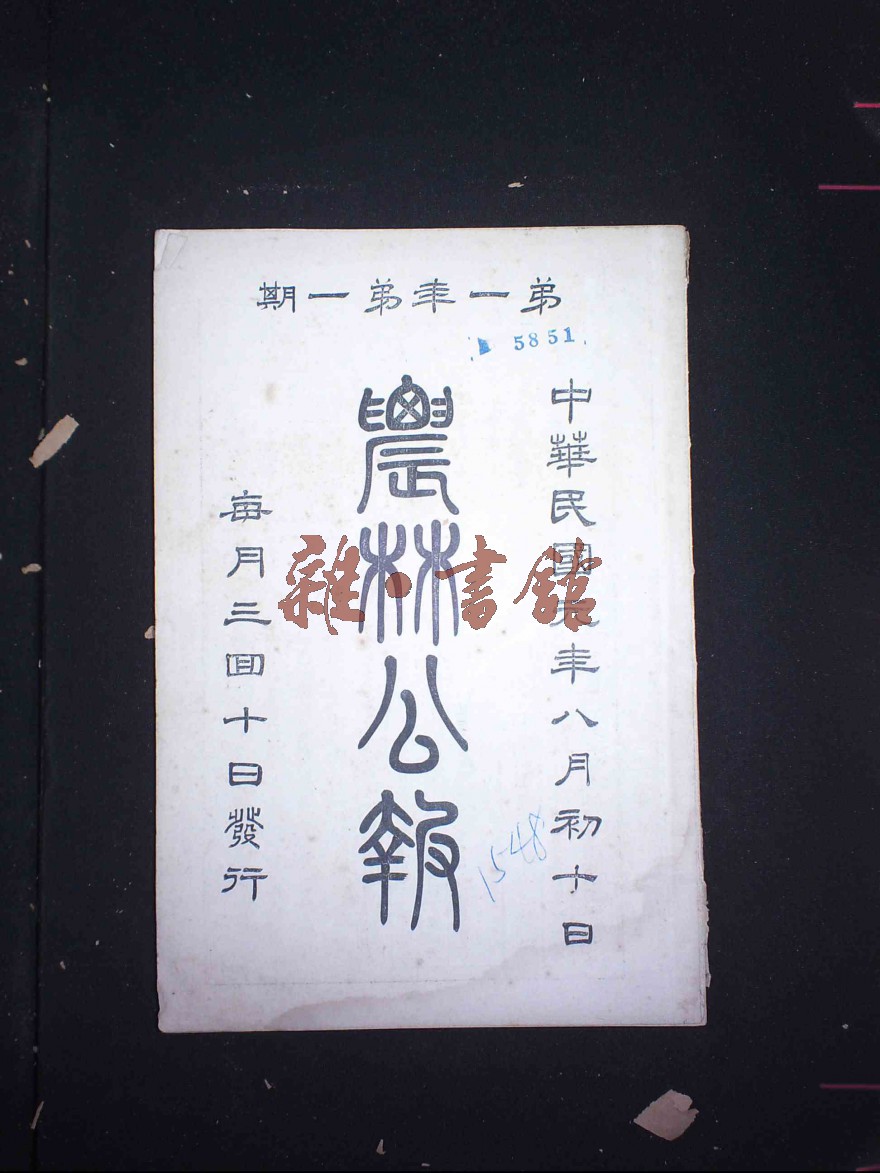 弟一年弟一期
5851
中華民國元年八月初十日
農林公報
每月三回十日發行
1548
雜·書館